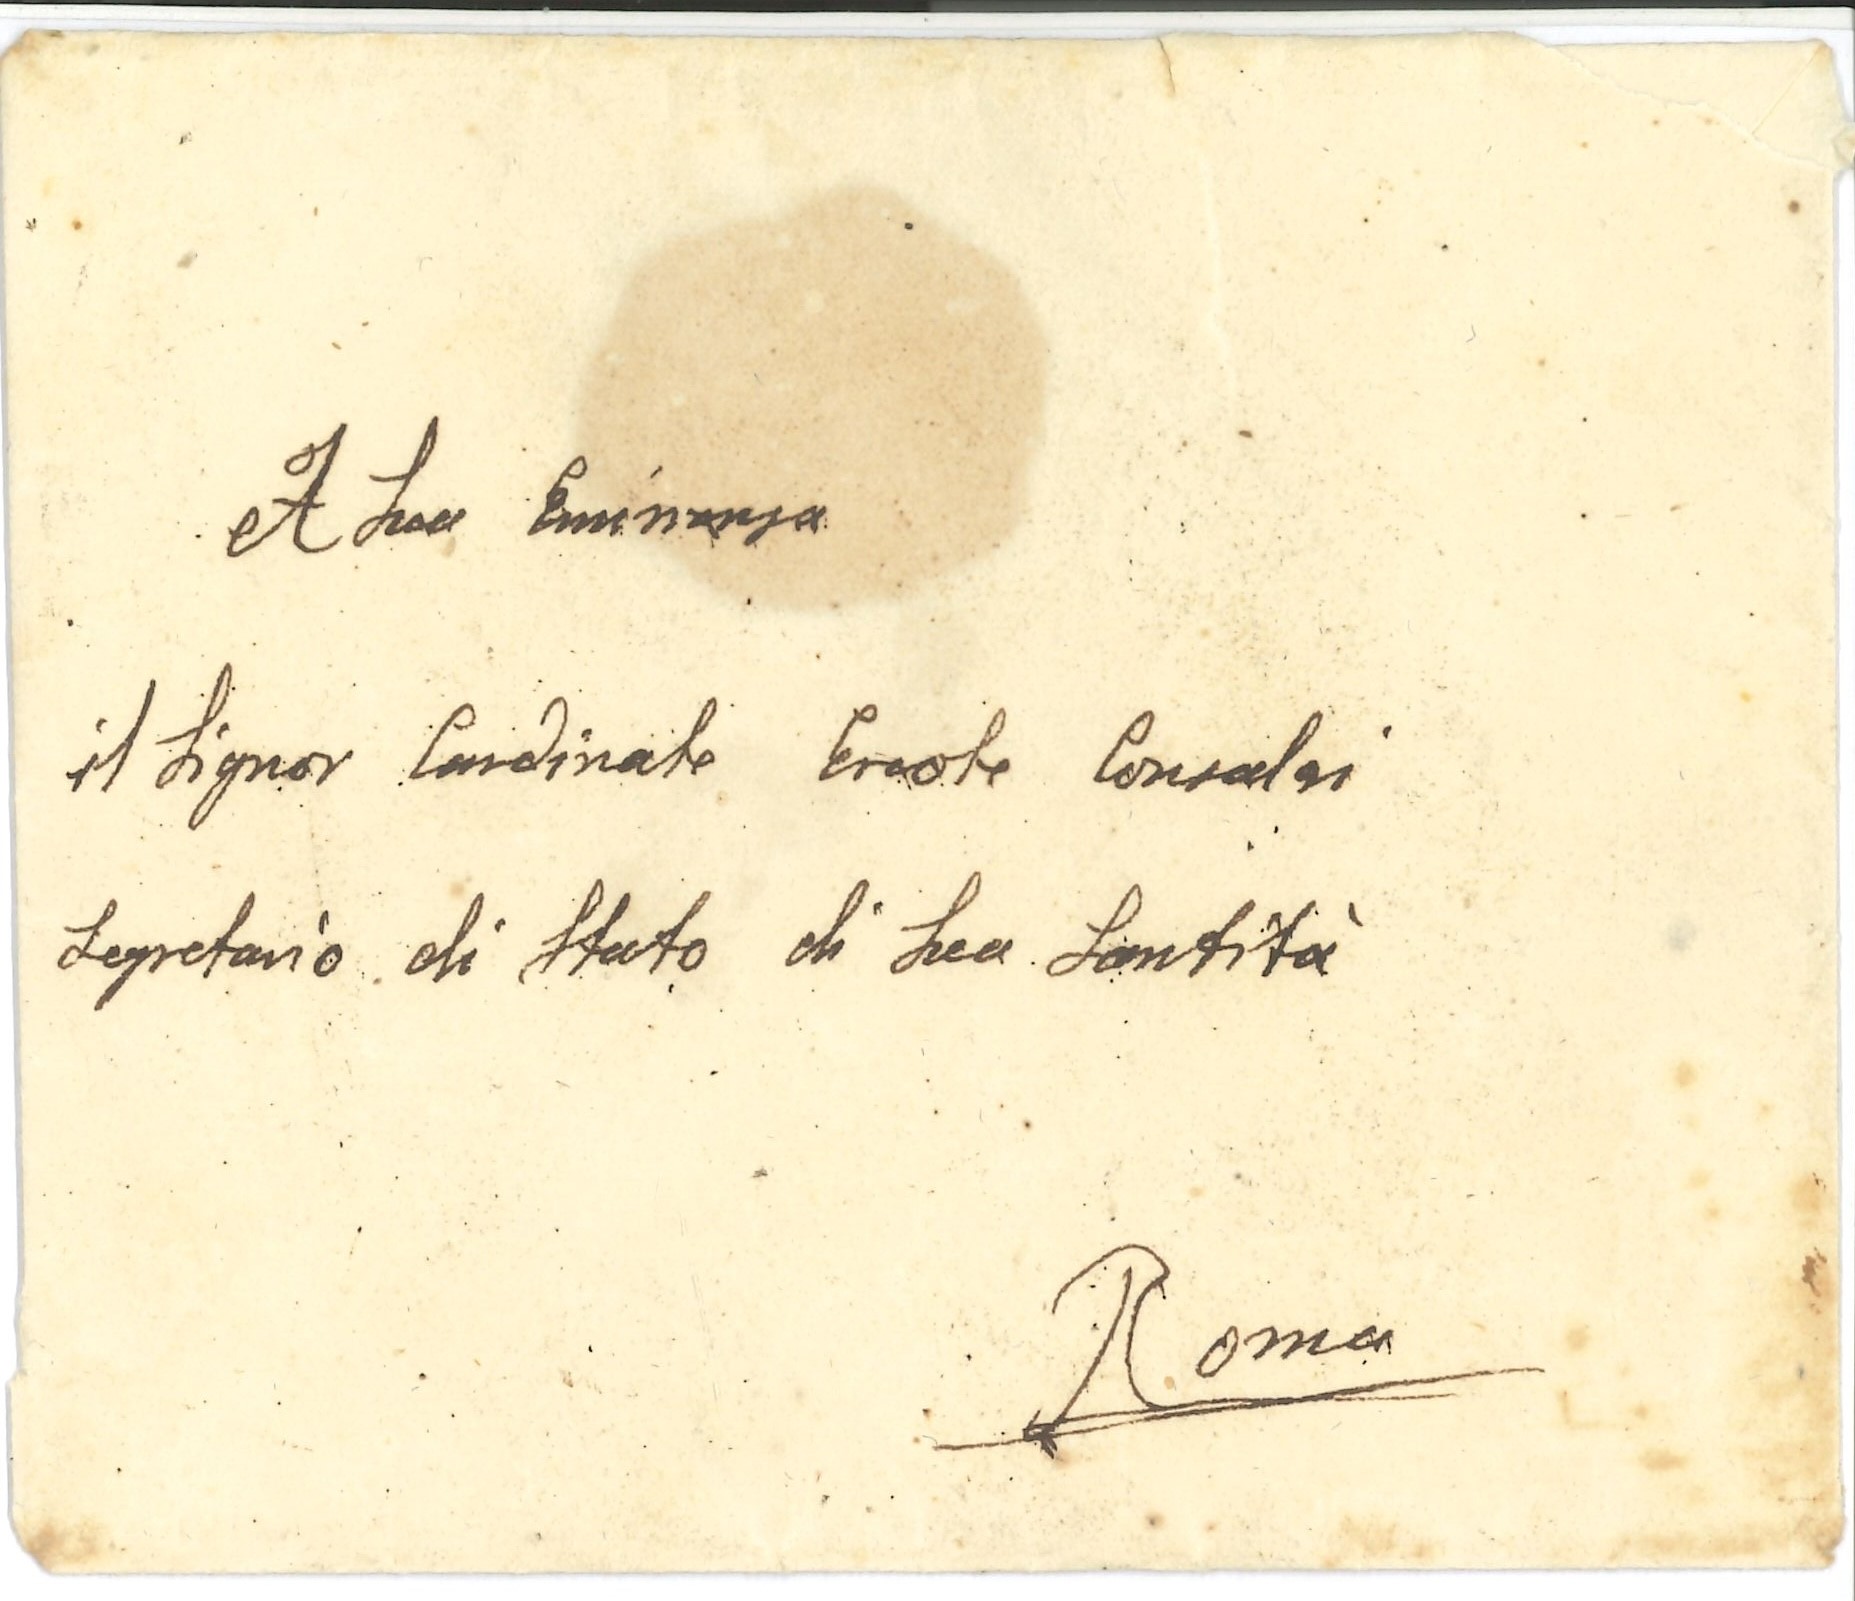 A Sua Eminenza
il Signor Cardinale Ercole Consalvi
Segretario di Stato di Sua Santità
Roma